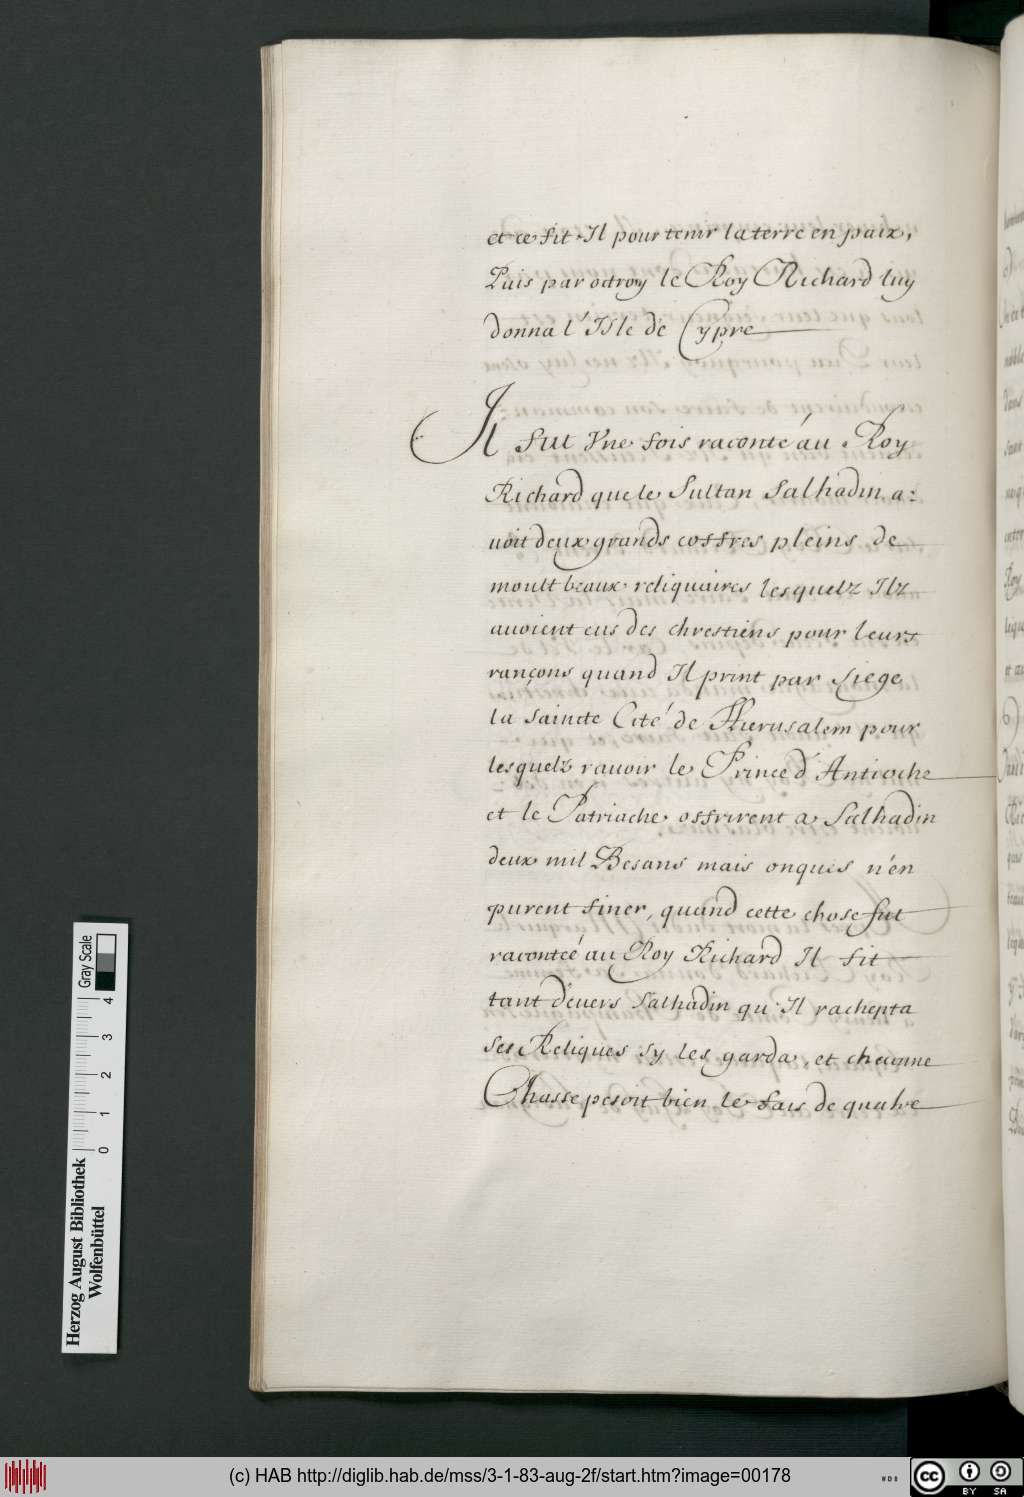 et ce fit Il pour tenir la terre en paix,
Puis par octroy le Roy Richard luy
donna l'Isle de Cypre
Il fut Vne fois raconté au Roy
Richard que le Sultan Salhadin a:
uoit deux grands coffres pleins de
moult beaux reliquaires lesquelz Ilz
auoient eus des chrestiens pour leurs
rançons quand Il print par Siege
la saincte Cité de Hierusalem pour
lesquelz rauoir le Prince d'Antioche
et le Patriache offrirent a Salhadin
deux mil Besans mais onques n'en
purent finer, quand cette chose fut
racontée au Roy Richard Il fit
tant deuers Salhadin qu'Il rachepta
ses Reliques sy les garda, et checunne
Chasse pesoit bien le fais de quatre
Gray Scale
4
3
2
1
0
Herzog August Bibliothek
Wolfenbüttel
(c) HAB http://diglib.hab.de/mss/3-1-83-aug-2f/start.htm?image=00178
WDB
cc BY SA